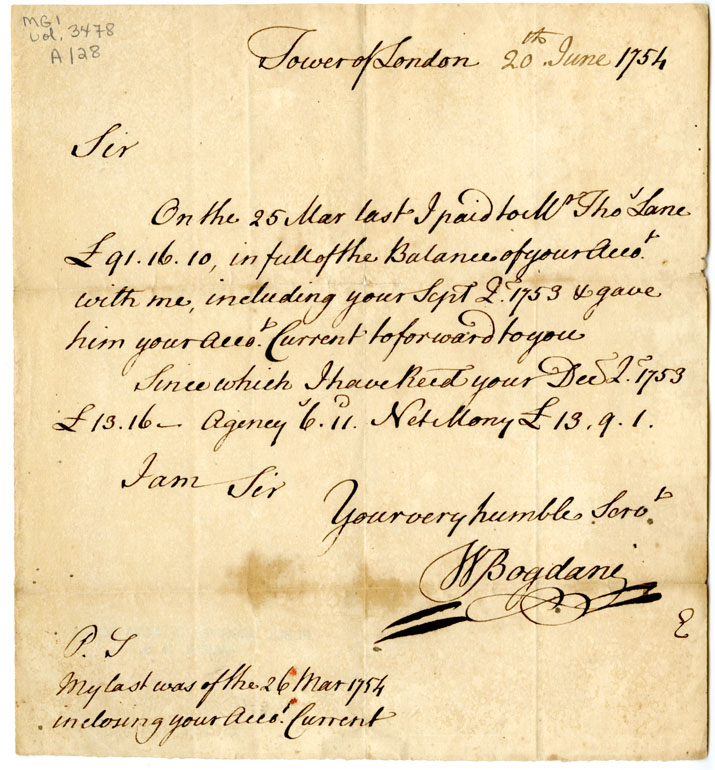 MG1
Vol. 3478
A/28
Tower of London 20th June 1754
Sir
On the 25 Mar last I paid to Mr Thos Lane
£91.16.10, in full of the Balance of your Accot.
with me, including your Sept Qr. 1753 & gave
him your Accot. Current to forward to you
Since which I have Recd your Decr Qr. 1753
£13.16— Agency 6s.11d. Net Mony £13.9.1.
I am Sir
Your very humble Servt.
WBogdani
P. S
My last was of the 26 Mar 1754
inclosing your Accot. Current